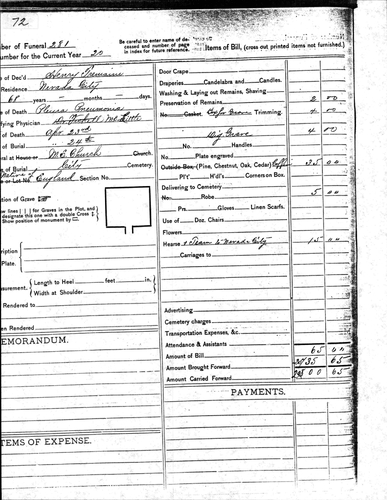 72
ber of Funeral 281
umber for the Current Year 20
Be careful to enter name of deceased and number of page in index for future reference.
Items of Bill, (cross out printed items not furnished.)
e of Dec'd Henry
Residence Nevada City
68 years months days.
e of Death Pleura Pneumonia
ifying Physician
of Death Apr 23rd
e of Burial " 24th
eral at House or M E Church Church.
e of Burial City Cemetery.
or Lot No. England Section No.
ition of Grave
w lines ( ) for Graves in the Plot, and
designate this one with a double Cross
Show position of monument by
ription
Plate.
Length to Heel feet in.
Width at Shoulder
Rendered to
en Rendered
EMORANDUM.
TEMS OF EXPENSE.
Door Crape
Draperies Candelabra and Candles.
Washing & Laying out Remains, Shaving
Preservation of Remains 2 00
No Casket, Trimming. 4 00
Dig Grave 4 00
No. Handles
Plate engraved
Outside Box (Pine, Chestnut, Oak, Cedar) Coff 35 00
H'dl's Corners on Box.
Delivering to Cemetery 5 00
No. Robe
Prs. Gloves Linen Scarfs.
Use of Doz. Chairs
Flowers
Hearse & Team to Nevada City 15 00
Carriages to
Advertising
Cemetery charges
Transportation Expenses, &c.
Attendance & Assistants 65 00
Amount of Bill
Amount Brought Forward
Amount Carried Forward
PAYMENTS.